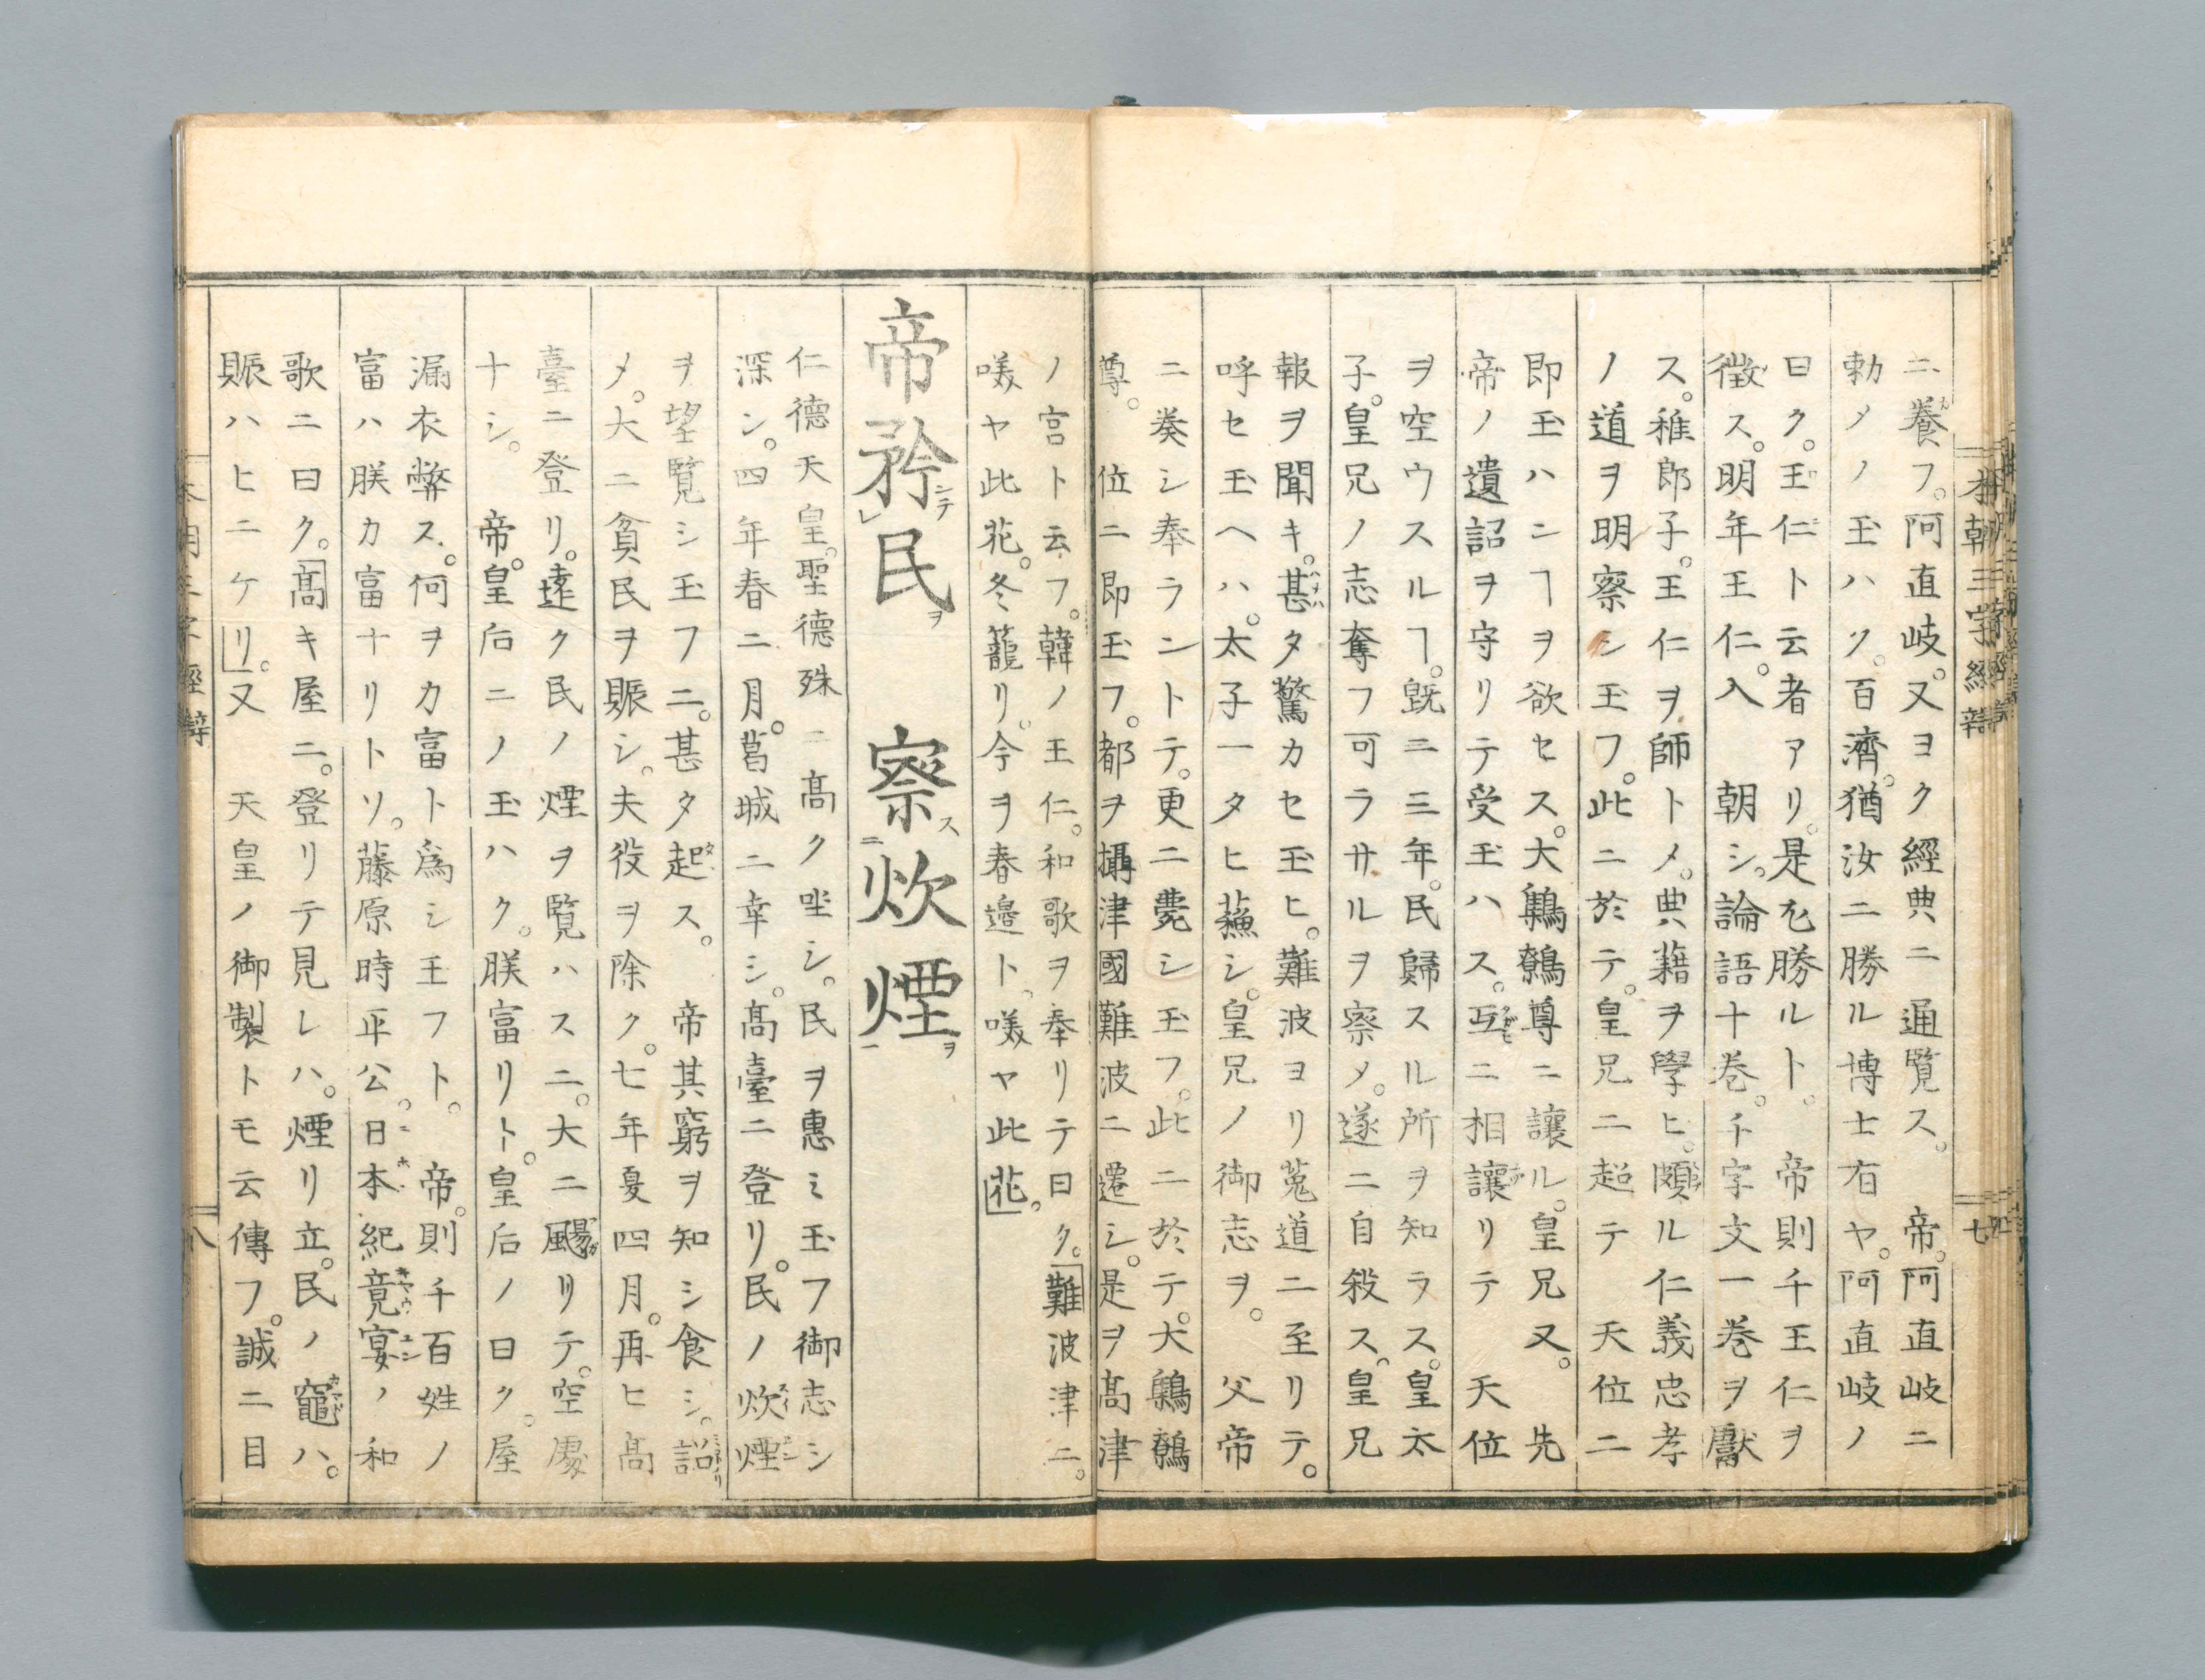 ニ養フ。阿直岐。又ヨク經典ニ通覧ス。　帝。阿直岐ニ
勅メノ玉ハク。百濟。猶汝ニ勝ル博士有ヤ。阿直岐ノ
曰ク。王仁ト云者アリ。是尤勝ルト。　帝則千王仁ヲ
徴ス。明年王仁。入　朝シ。論語十巻。千字文一巻ヲ獻
ス。稚郎子。王仁ヲ師トメ。典藉ヲ學ヒ。頗ル仁義忠孝
ノ道ヲ明察シ玉フ。此ニ於テ。皇兄ニ超テ　天位ニ
即玉ハンヿヲ欲セス。大鷦鷯尊ニ讓ル。皇兄又。　先
帝ノ遺詔ヲ守リテ受玉ハス。互ニ相讓リテ　天位
ヲ空ウスルヿ。既ニ三年。民歸スル所ヲ知ラス。皇太
子。皇兄ノ志奪フ可ラサルヲ察メ。遂ニ自殺ス。皇兄
報ヲ聞キ。甚タ驚カセ玉ヒ。難波ヨリ菟道ニ至リテ。
呼セ玉ヘハ。太子一タヒ蘓シ。皇兄ノ御志ヲ。　父帝
ニ奏シ奉ラントテ。更ニ薨シ玉フ。此ニ於テ。大鷦鷯
尊。　位ニ即玉フ。都ヲ攝津國難波ニ遷シ。是ヲ髙津
本朝三字經辤
七
ノ宮ト云フ。韓ノ王仁。和歌ヲ奉リテ曰ク。「難波津ニ。
咲ヤ此花。冬籠リ。今ヲ春邉ト。咲ヤ此花。」
帝矜シテレ民ヲ　察スニ炊煙ヲ一
仁德天皇。聖德殊ニ髙ク坐シ。民ヲ惠ミ玉フ御志シ
深シ。四年春二月。葛城ニ幸シ。髙臺ニ登リ。民ノ炊煙
ヲ望覧シ玉フニ。甚タ起ス。　帝其窮ヲ知シ食シ。詔
メ。大ニ貧民ヲ賑シ。夫役ヲ除ク。七年夏四月。再ヒ髙
臺ニ登リ。遠ク民ノ煙ヲ覧ハスニ。大ニ颺リテ。空處
ナシ。　帝。皇后ニノ玉ハク。朕富リト。皇后ノ曰ク。屋
漏衣弊ス。何ヲカ富ト爲シ玉フト。　帝。則千百姓ノ
富ハ朕カ富ナリトソ。藤原時平公。日本紀竟宴ノ和
歌ニ曰ク。「髙キ屋ニ。登リテ見レハ。煙リ立。民ノ竈ハ。
賑ハヒニケリ」。又　天皇ノ御製トモ云傳フ。誠ニ目
本朝三字經辤
八